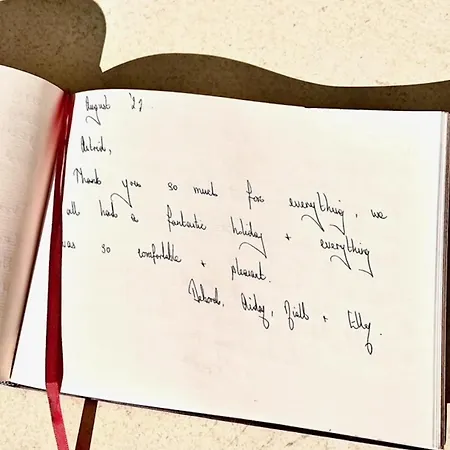 August '22
Astrid,
Thank you so much for everything, we
all had a fantastic holiday + everything
was so comfortable + pleasant.
Deborah, + Lilly.